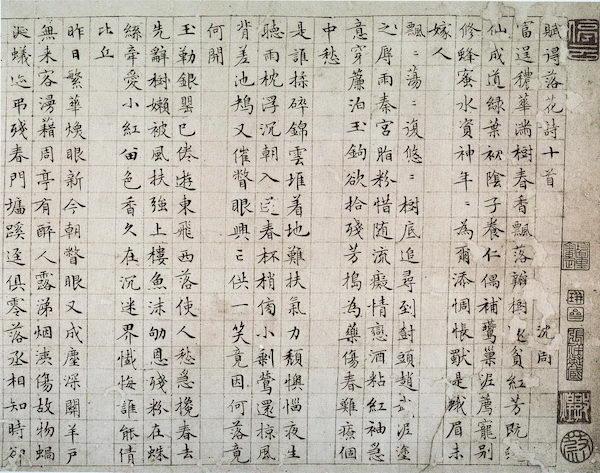 賦得落花詩十首
沈周
富逞穠華滿樹春香飄落瓣樹還貧紅芳既蛻
仙成道綠葉初陰子養仁偶補鶯巢泥薦寵別
修蜂蜜水資神年〻為爾添惆悵獨是蛾眉未
嫁人
飄〻蕩〻復悠〻樹底追尋到樹頭趙武泥塗
之辱雨秦宮脂粉惜隨流癡情戀酒粘紅袖急
意穿簾泊玉鉤欲拾殘芳搗為藥傷春難療個
中愁
是誰揉碎錦雲堆着地難扶氣力頹懊惱夜生
聽雨枕浮沉朝入送春杯梢傍小剩鶯還掠風
背差池鷰又催瞥眼興亡供一笑竟因何落竟
何開
玉勒銀罌已倦遊東飛西落使人愁急攙春去
先辭樹嬾被風扶強上樓魚沫劬恩殘粉在蛛
絲牽愛小紅留色香久在沉迷界懺悔誰能倩
比丘
昨日繁華煥眼新今朝瞥眼又成塵深關羊戶
無來客漫藉周亭有醉人露涕烟洟傷故物蝸
涎蟻迹弔殘春門墻蹊逕俱零落丞相知時卻